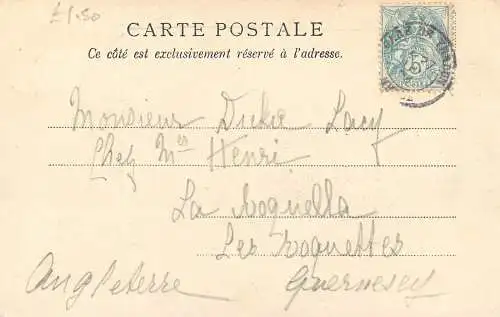 £1.50
CARTE POSTALE
Ce côté est exclusivement réservé à l'adresse.
5
Monsieur Duke Lacy
Chez Mrs Henri
La Roquella
Les Roquettes
Angleterre Guernesey